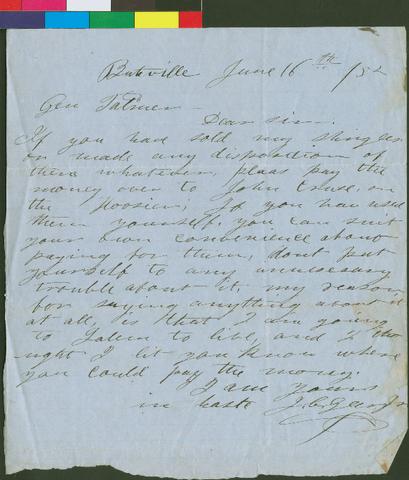 Buteville June 16th /52
Gen Palmer
Dear sir.
If you have sold my shingles
or made any disposition of
them whatever, pleas pay the
money over to John Cruse, on
the Hoosier; If you have used
them yourself, you can suit
your own convenience about
paying for them, dont put
yourself to any unnecesary
trouble about it. my reason
for saying anything about it
at all, is that I am going
to Salem to live, and I tho
ught I let you know where
you could pay the money.
I am yours
in haste J. C. Geer Jr